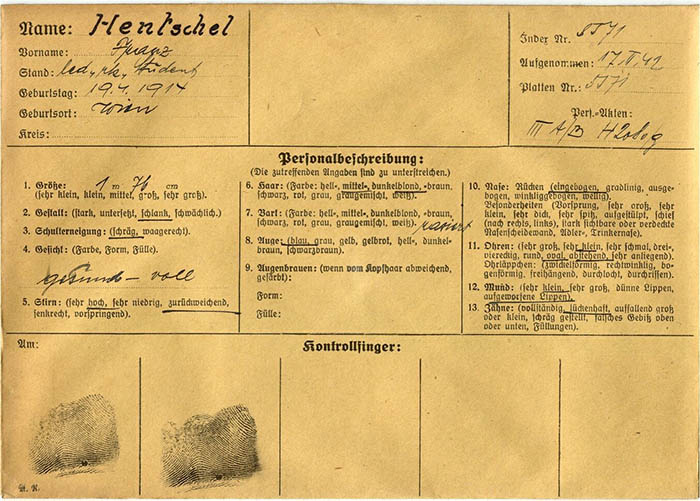 Name: Hentschel
Vorname: Franz
Stand: led., rk., Student
Geburtstag: 19.4.1914
Geburtsort: Wien
Kreis:
Index Nr. 5571
Aufgenommen: 17.IV.42
Platten Nr.: 5571
Pers.-Akten:
III A/B H 206g
Personalbeschreibung:
(Die zutreffenden Angaben sind zu unterstreichen.)
1. Größe: 1 m 76 cm
(sehr klein, klein, mittel, groß, sehr groß).
2. Gestalt: (stark, untersetzt, schlank, schwächlich).
3. Schulterneigung: (schräg, waagerecht).
4. Gesicht: (Farbe, Form, Fülle).
gesund – voll
5. Stirn: (sehr hoch, sehr niedrig, zurückweichend,
senkrecht, vorspringend).
6. Haar: (Farbe: hell-, mittel-, dunkelblond, -braun,
schwarz, rot, grau, graugemischt, weiß).
7. Bart: (Farbe: hell-, mittel-, dunkelblond, -braun,
schwarz, rot, grau, graugemischt, weiß). rasiert
8. Auge: (blau, grau, gelb, gelbrot, hell-, dunkel-
braun, schwarz, schielend).
9. Augenbrauen: (wenn vom Kopfhaar abweichend,
gefärbt):
Form:
Fülle:
10. Nase: Rücken (eingebogen, gradlinig, ausge-
bogen, winkliggebogen, wellig).
Besonderheiten (Vorsprung, sehr groß, sehr
klein, sehr dick, sehr spitz, aufgestülpt, schief
(nach rechts, links), stark sichtbare oder verdeckte
Nasenscheidewand, Adler-, Trinkernase).
11. Ohren: (sehr groß, sehr klein, sehr schmal, drei-
viereckig, rund, oval, abstehend, sehr anliegend)
Ohrläppchen: (zwickelförmig, rechtwinklig, bo-
genförmig, freihängend, durchlocht, durchrissen).
12. Mund: (sehr klein, sehr groß, dünne Lippen,
aufgeworfene Lippen).
13. Zähne: (vollständig, lückenhaft, auffallend groß
oder klein, schräg gestellt, falsches Gebiß oben
oder unten, Füllungen).
Am:
Kontrollfinger: